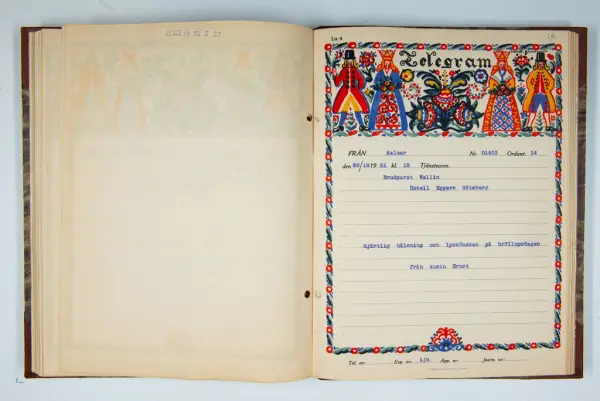 Lx 4
Telegram
FRÅN Kalmar Nr. 01423 Ordant. 14
den 29/1019 21 kl. 12 Tjänsteanm.
Brudparet Wallin
Hotell Eggers Göteborg
Hjärtlig hälsning och lyckönskan på bröllopsdagen
från kusin Ernst
Tel. nr. Exp. nr. App. nr. Journ. nr.